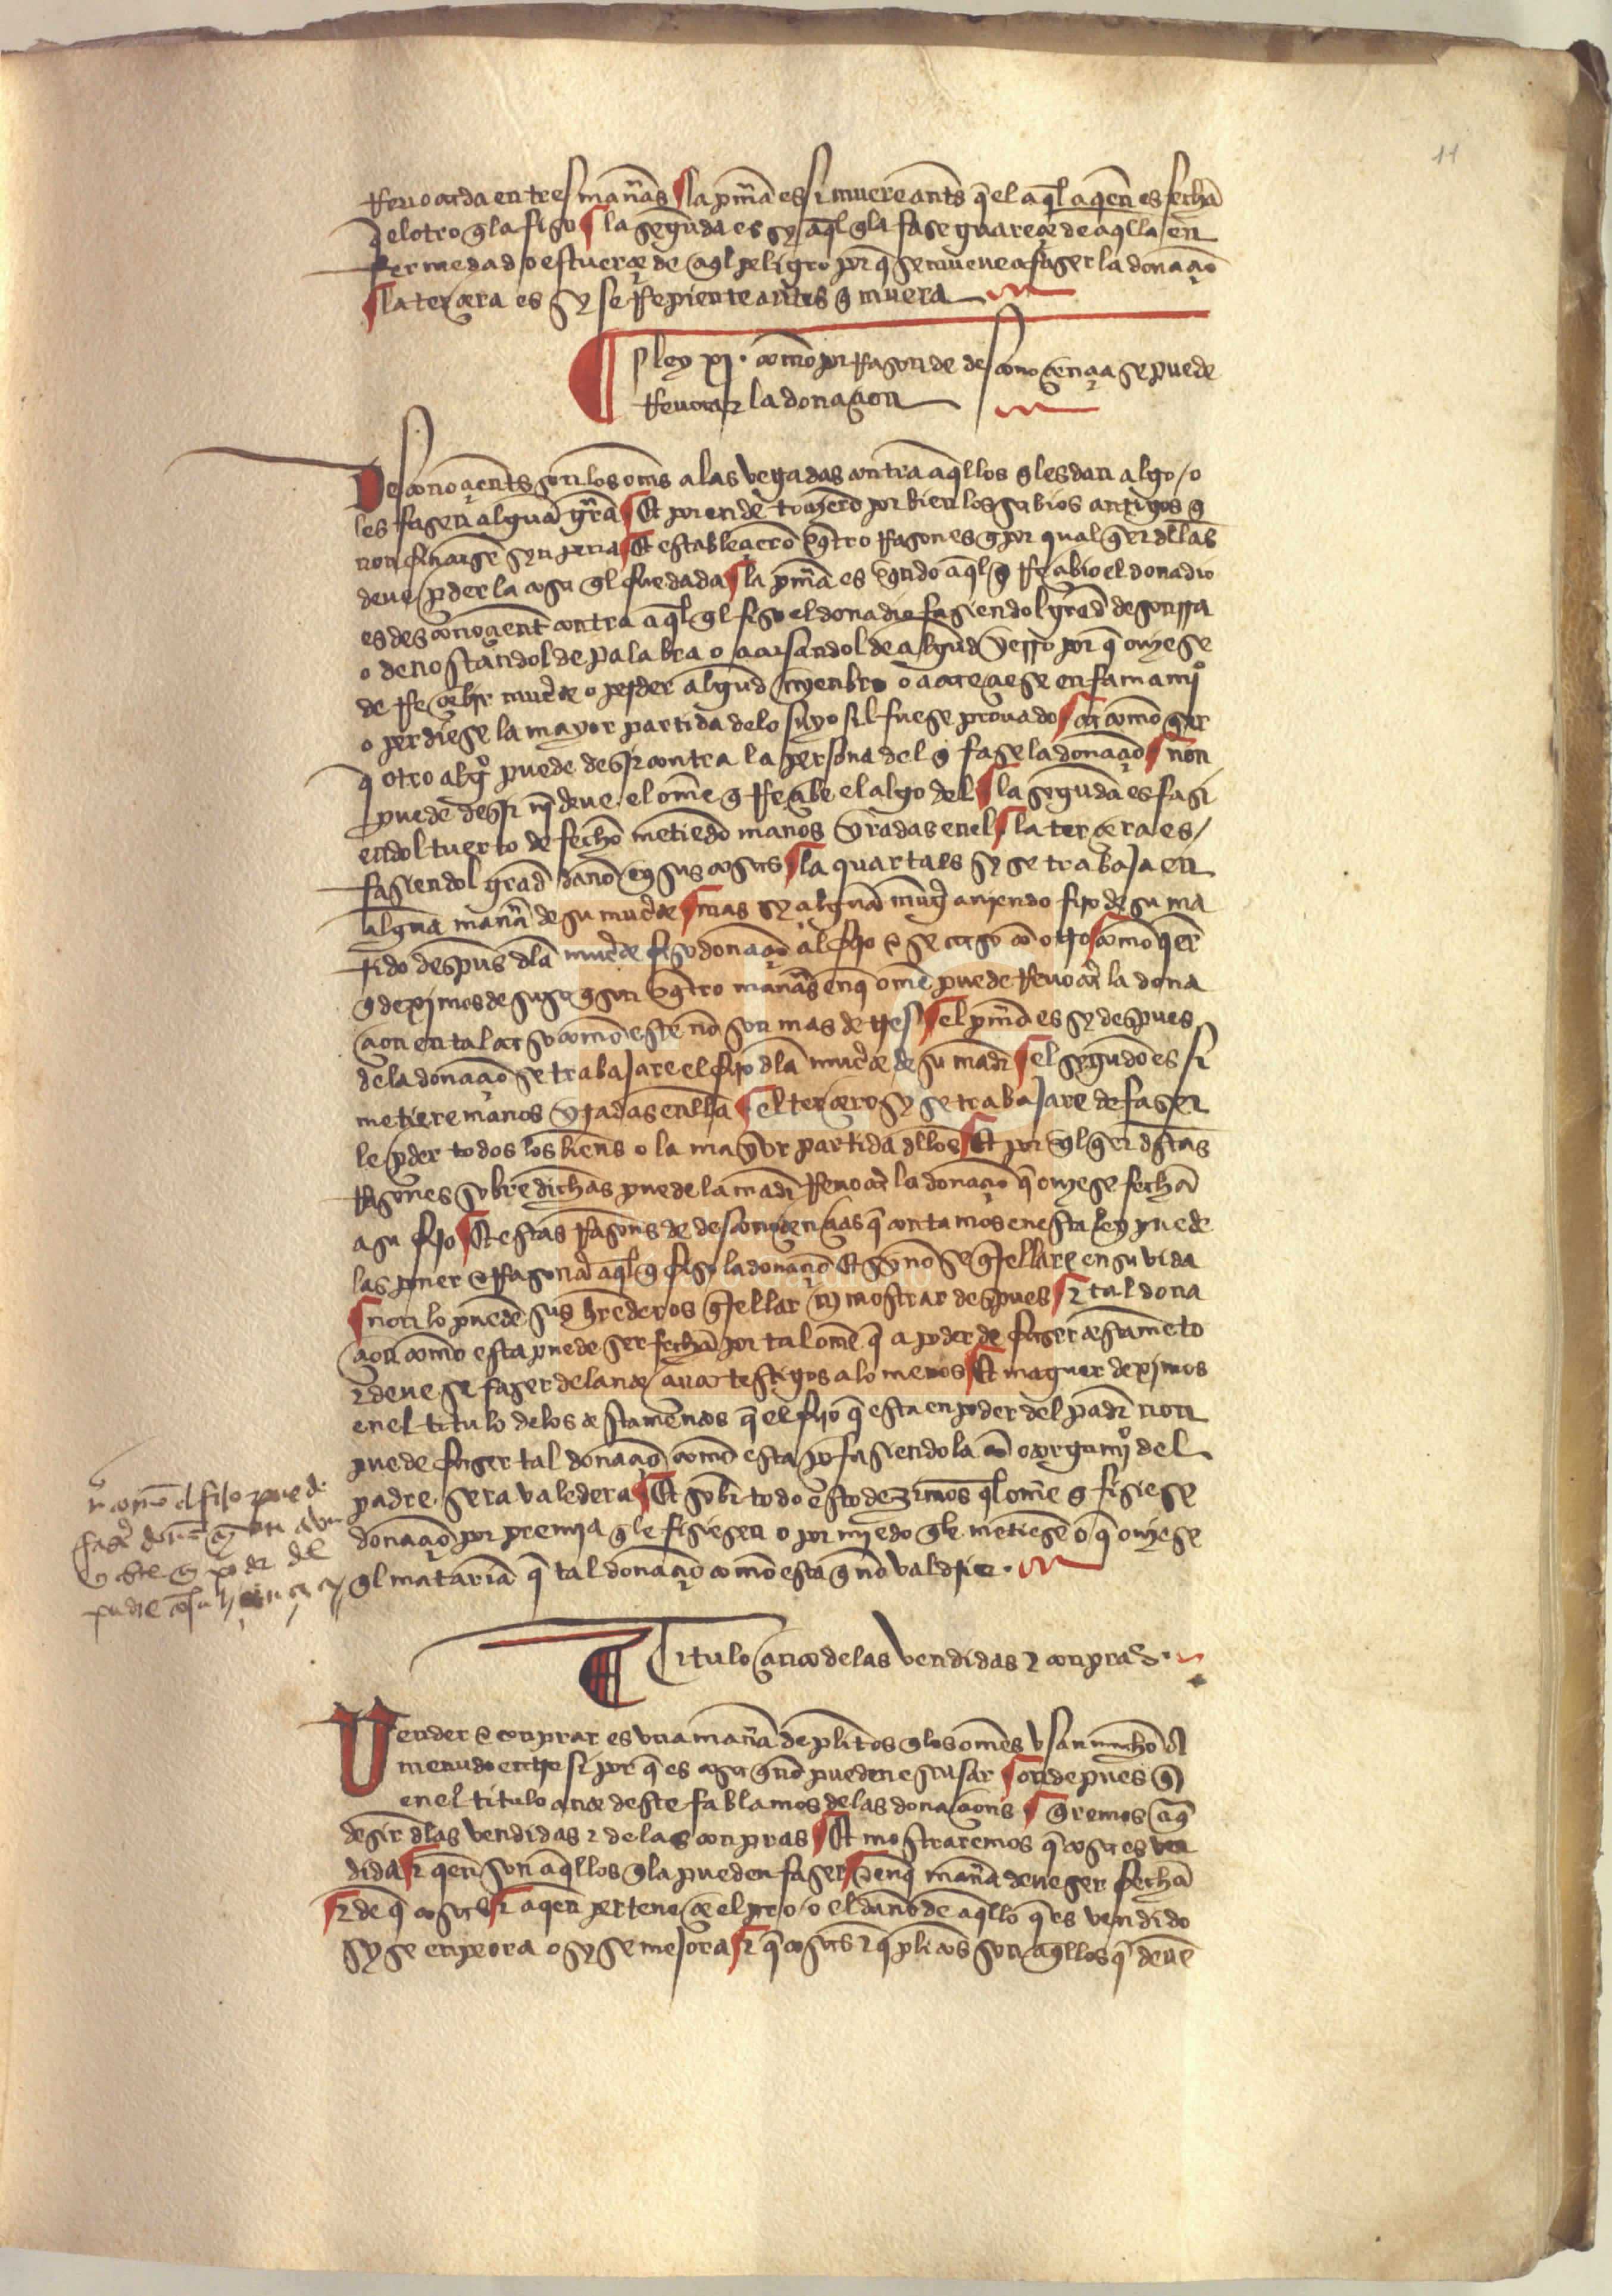 11
Reuocada en tres man̄as la pm̄a es si muere ants̄ q̄ el aq̄l a qen̄ es fecha
q̄ el otro q̄ la fiso la segūda es sy aq̄l q̄ la fase guaresçe de aq̄lla en
fermedad o estuerçe de aq̄l peligro por q̄ se mueue a faser la donaçiō
la terçera es sy se Repiente antes q̄ muera
ley xj. como por Rason de desconosçençia se puede
Reuocar la donaçion
Desconoçients̄ son los om̄s a las vegadas contra aq̄llos q̄ les dan algo / o
les fasen alguā gr̄a Et por ende touierō por bien los sabios antigos q̄
non fincase syn pena Et establesçierō q̄tro Rasones q̄ por qual q̄er dellas
deue pder la cosa q̄l fue dada la pm̄a es q̄ndo aq̄l q̄ Resçibio el donadio
es desconoçient̄ contra aq̄l q̄l fiso el donadio fasiendol grād desonrra
o denostandol de palabra o acusandol de algūd yerro por q̄ ouiese
de Resçebir mūte o perder algūd mienbro o a caeçiese en famamj̊
o perdiese la mayor partida de lo suyo sil fuese prouado ca como q̄er
q̄ otro algº puede desir contra la persona del q̄ fase la donaçiō non
puede desir nj̄ deue el om̄e q̄ Resçibe el algo del la segūda es fasi
endol tuerto de fecho metiendo manos yradas en el la terçera es /
fasiendol grād dan̄o en sus cosas la quarta es sy se trabaja en
algūa man̄a de su mūte mas sy algūa mug̃ auiendo fijo de su ma
rido despūs dla mūte fiso donaçiō al fijo e se caso cō otro como q̄er
q̄ deximos de suso q̄ son q̄tro man̄as en q̄ om̄e puede Reuocar la dona
çion en tal caso como este nō son mas de tres el pm̄o es sy despues
de la donaçiō se trabajare el fijo dla mūte de su madr̄ el segūdo es si
metiere manos yradas en ella el terçero sy se trabajare de faser
le pder todos los bien̄s o la mayor partida dllos Et por q̄l q̄er dstas
Rasones sobre dichas puede la madr̄ Reuocar la donaçiō q̄ ouiese fecha
a su fijo Et estas Rason̄s de desconosçençias q̄ contamos en esta ley puede
las poner e Rasonar aq̄l q̄ fiso la donaçiō Et sy nō se q̄rellare en su vida
non lo puedē sus hrederos q̄rellar nj̄ mostrar despues ⁊ tal dona
çion como esta puede ser fecha por tal om̄e q̄ a poder de faser testamēto
⁊ deue se faser delante çinco testigos a lo menos Et maguer deximos
en el titulo de los testamentos q̄ el fijo q̄ esta en poder del padr̄ non
puede faser tal donaçiō como esta po fasiendola cō otorgamjº del
padre sera valedera Et sobr̄ todo esto dezimos q̄l om̄e q̄ fisiese
donaçiō por premia q̄ le fisiesen o por miedo q̄ le metiesē o q̄ ouiese
q̄l matariā q̄ tal donaçiō como esta q̄ nō valdrie.
como el fijo puede
faser
poder del
padre
Titulo çinco de las vendidas ⁊ conpras.
Vender e conprar es vna man̄a de plitos q̄ los om̄es vsan mucho a
menudo entre si por q̄ es cosa q̄ nō pueden escusar onde pues q̄
en el titulo ante deste fablamos de las donaçion̄s q̄remos aq̄
desir dlas vendidas ⁊ de las conpras Et mostraremos q̄ cosa es ven
dida ⁊ qen̄ son aq̄llos q̄ la pueden faser ⁊ en q̄ man̄a deue ser fecha
⁊ de q̄ cosas ⁊ a qen̄ pertenesçe el pro / o el dan̄o de aq̄llo q̄ es vendido
sy se enpeora o sy se mejora ⁊ q̄ cosas ⁊ q̄ plitos son aq̄llos q̄ deuē